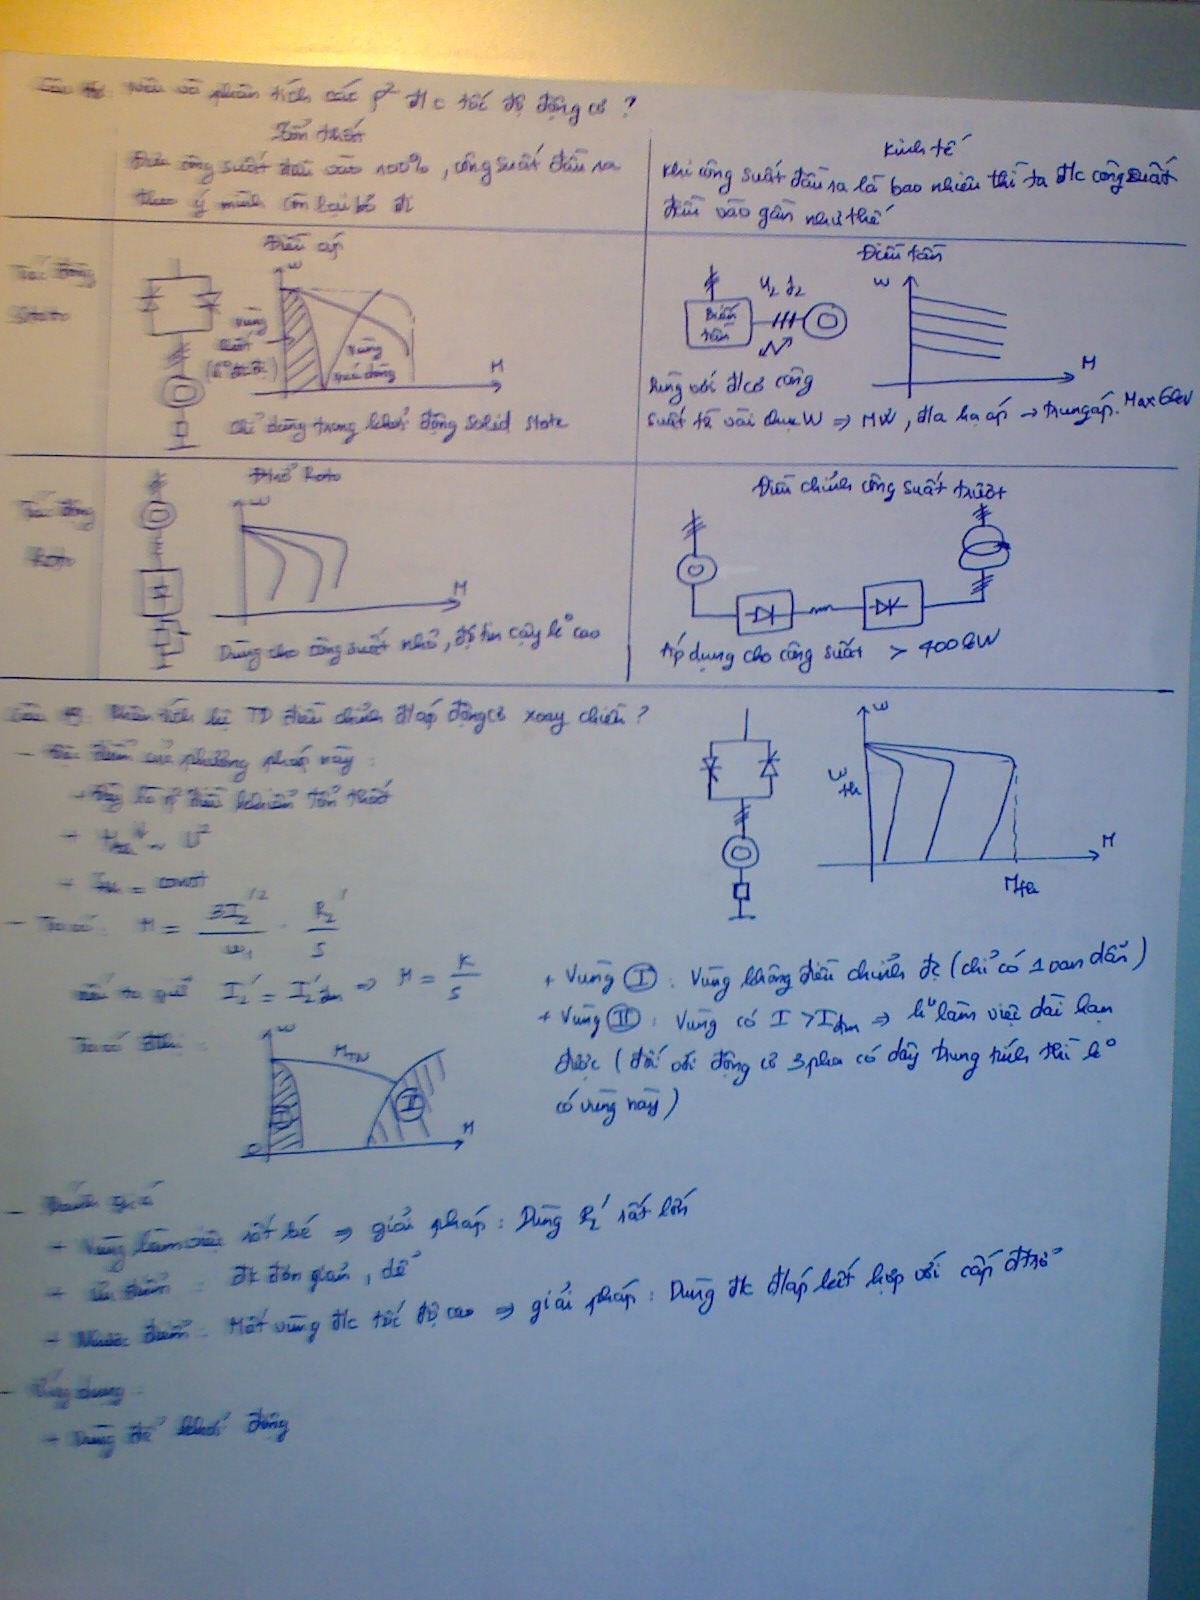 nêu và phân tích các p² đ/c tốc độ động cơ ?
Tổn thất
Đưa công suất đầu vào 100%, công suất đầu ra
theo ý mình còn lại bỏ đi
Kinh tế
Khi công suất đầu ra là bao nhiêu thì ta đ/c công suất
đầu vào gần như thế
Tác động
Stato
Điều áp
ω
vùng
Vùng
quá dòng
M
Chỉ dùng trong khởi động solid state
Điều tần
Biến
tần
U₂ f₂
ω
M
Dùng với đ/cơ công
suất từ vài chục W ⇒ MW, đ/a hạ áp → trung áp. Max 6kV
Tác động
Roto
Đ/trở Roto
ω
M
Dùng cho công suất nhỏ, độ tin cậy k° cao
Điều chỉnh công suất trượt
Áp dụng cho công suất > 400kW
Phân tích hệ TĐ điều chỉnh đ/áp động cơ xoay chiều ?
- Đặc điểm của phương pháp này :
+ Đây là p² điều khiển tổn thất
+ ~ U²
+ = const
ω
ω th
M
Mth
- Ta có : M = 3I₂'² / ω₁ . R₂' / s
nếu ta giữ I₂' = I₂'đm ⇒ M = K / s
Ta có đthị :
ω
MTN
I
II
O
M
+ Vùng I : Vùng không điều chỉnh đc (chỉ có 1 van dẫn)
+ Vùng II : Vùng có I > Iđm ⇒ k° làm việc dài hạn
được (đối với động cơ 3 pha có dây trung tính thì k°
có vùng này)
- Đánh giá
+ Vùng làm việc rất bé ⇒ giải pháp : Dùng R₂' rất lớn
+ Ưu điểm : đk đơn giản, dễ
+ Nhược điểm : Mất vùng đ/c tốc độ cao ⇒ giải pháp : Dùng đk đ/áp kết hợp với cấp đ/trở
- Ứng dụng :
+ Dùng để khởi động